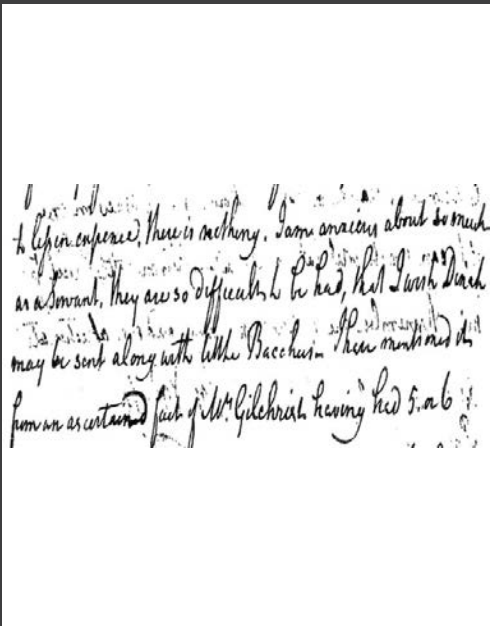 to lessen expence, there is nothing. I am anxious about so much
as a Servant, they are so difficult to be had, that I wish Dinah
may be sent along with little Bacchus - I have mentioned it
from an ascertained fact of Mr. Gilchrist having had 5. or 6